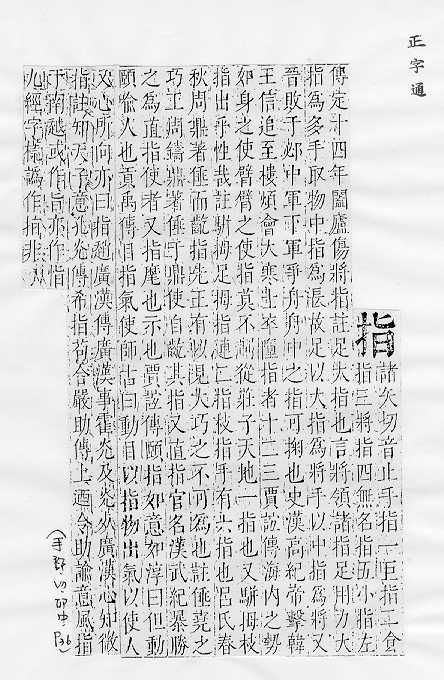 正字通
指
諸矢切音止手指一巨指二食
指三將指四無名指五小指左
傳定十四年闔廬傷將指註足大指也言將領諸指足用力大
指爲多手取物中指爲長故足以大指爲將手以中指爲將又
晉敗于邲中軍下軍爭舟舟中之指可掬也史漢高紀帝擊韓
王信追至樓煩會大寒士卒墮指者十二三賈誼傳海內之勢
如身之使臂臂之使指莫不制從莊子天地一指也又駢拇枝
指出乎性哉註駢拇足拇指連二指枝指手有六指也呂氏春
秋周鼎著倕而齕指先王有以見大巧之不可爲也註倕堯之
巧工周鑄鼎著倕于鼎使自齕其指又直指官名漢武紀暴勝
之爲直指使者又指麾也示也賈誼傳頤指如意如淳曰但動
頤喩人也貢禹傳目指氣使師古曰動目以指物出氣以使人
又心所向亦曰指趙廣漢傳廣漢事霍光及光薨廣漢心知微
指註知天子意兆光傳希指苟合嚴助傳上迺令助諭意風指
于南越或作旨亦作恉
九經字樣譌作指非
(手部 卯中 P.36)